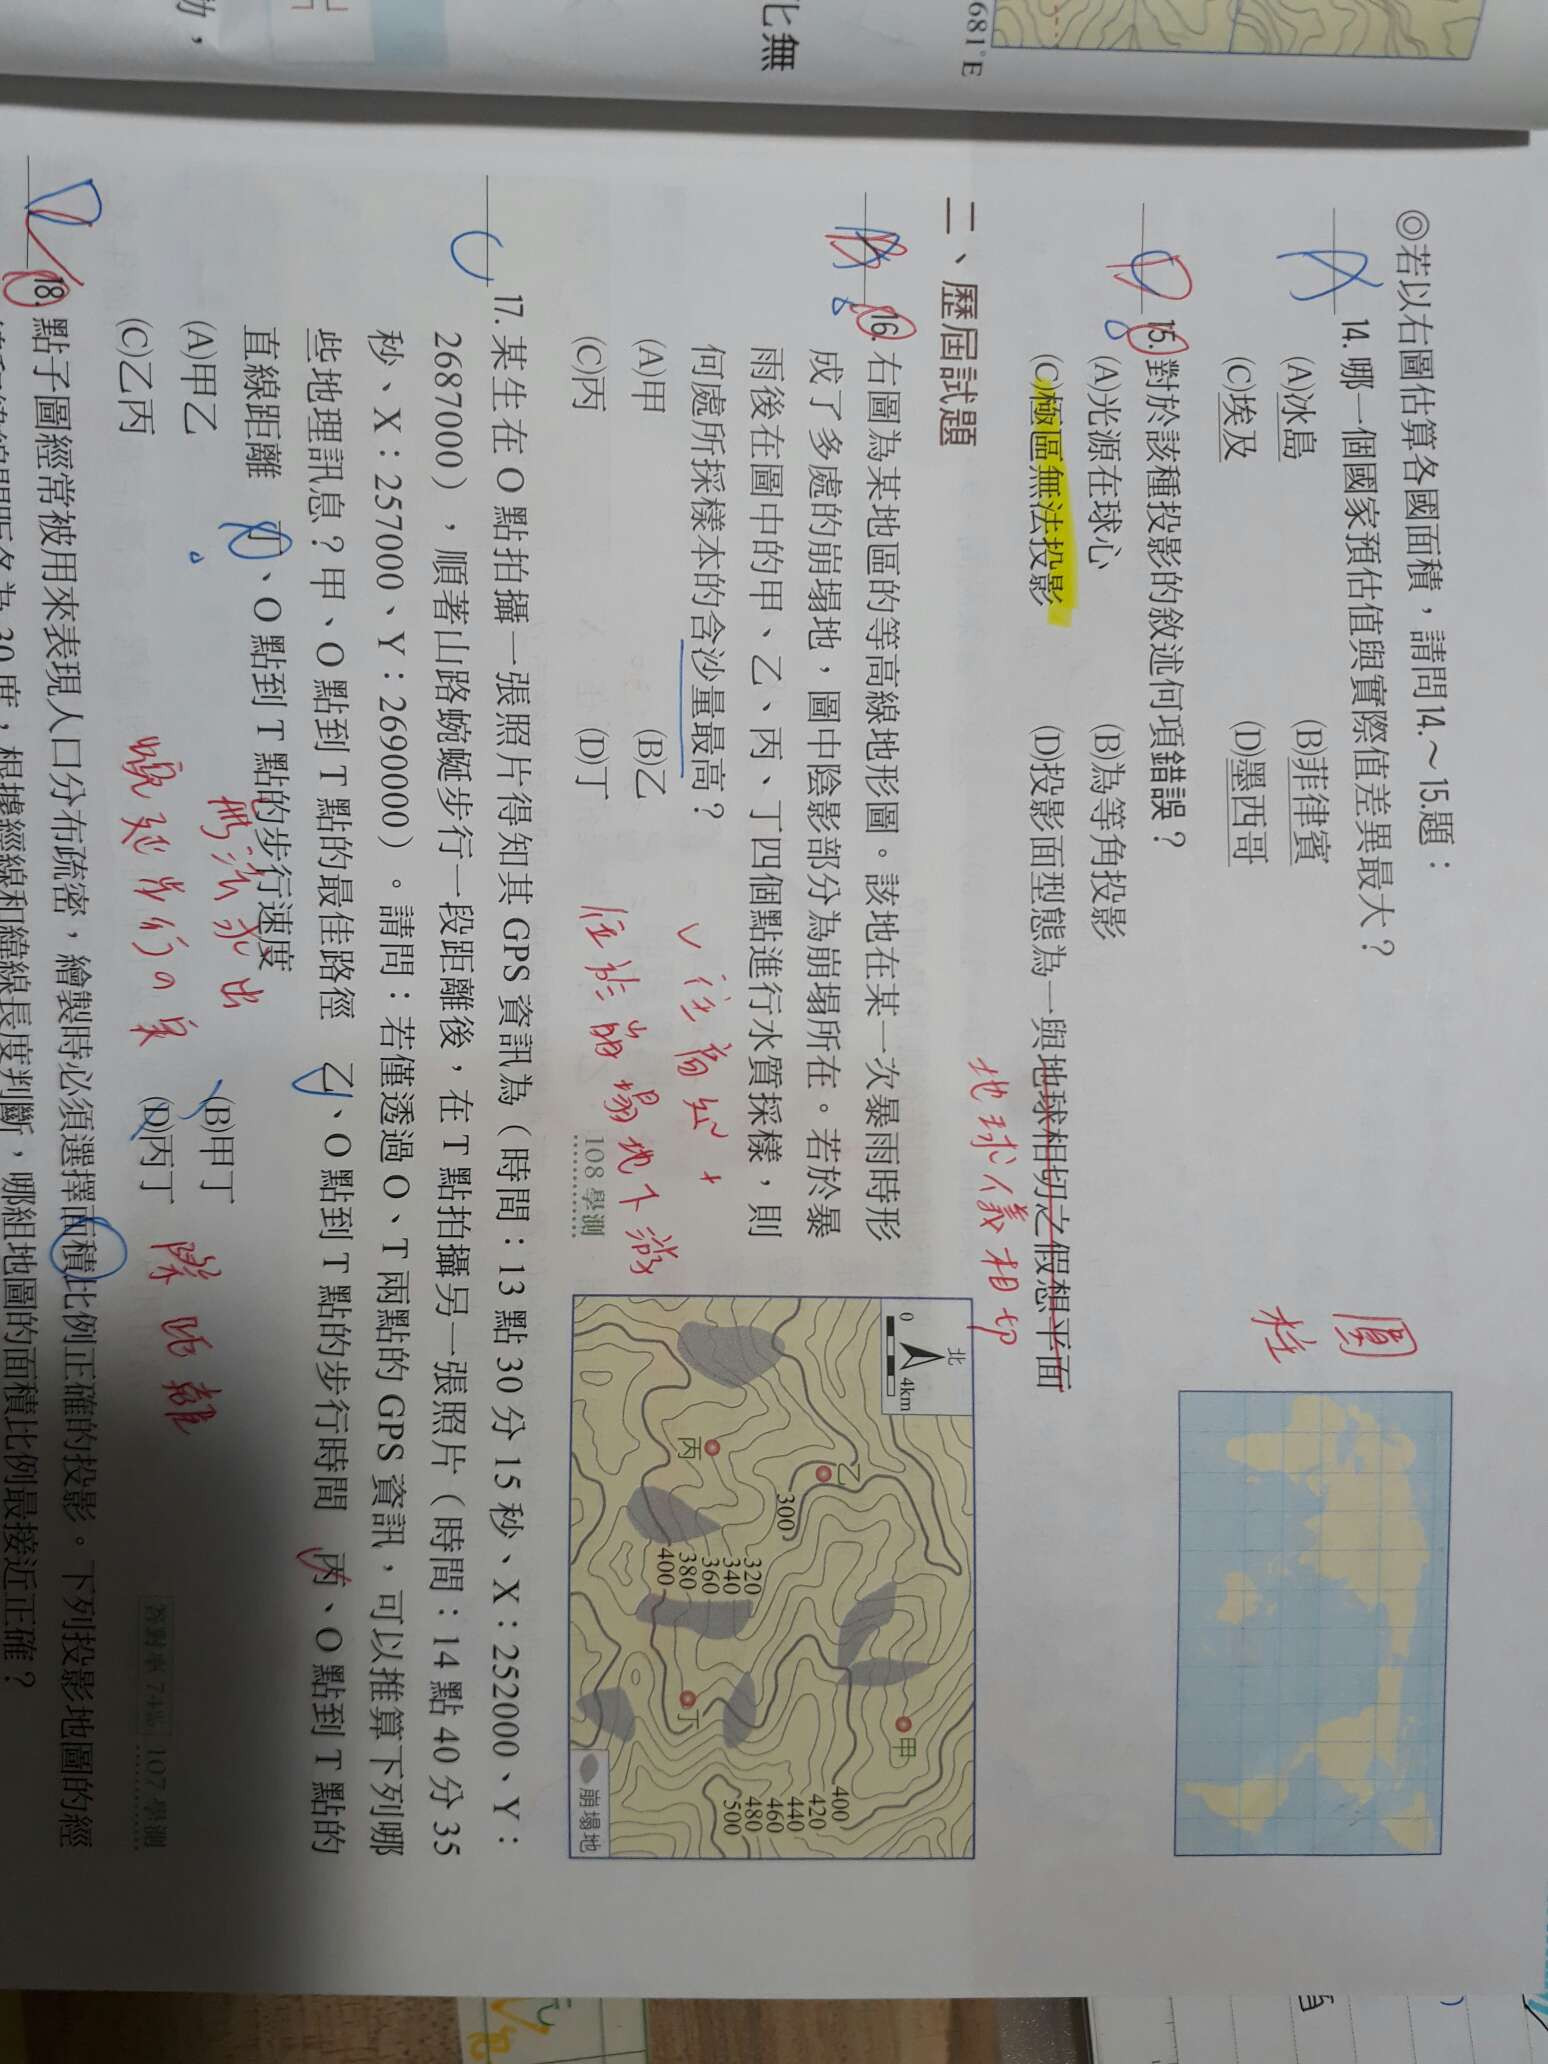 681°E
化無
◎若以右圖估算各國面積，請問14.～15.題：
14. 哪一個國家預估值與實際值差異最大？
(A)冰島 (B)菲律賓
(C)埃及 (D)墨西哥
圓柱
D 15. 對於該種投影的敘述何項錯誤？
(A)光源在球心 (B)為等角投影
(C)極區無法投影 (D)投影面型態為一與地球相切之假想平面
地球儀相切
二、歷屆試題
B 16. 右圖為某地區的等高線地形圖。該地在某一次暴雨時形
成了多處的崩塌地，圖中陰影部分為崩塌所在。若於暴
雨後在圖中的甲、乙、丙、丁四個點進行水質採樣，則
何處所採樣本的含沙量最高？
(A)甲 (B)乙
(C)丙 (D)丁
位於崩塌地下游
108 學測
北
0 4km
甲
乙
丙
丁
300
320
340
360
380
400
400
420
440
460
480
500
崩塌地
C 17. 某生在 O 點拍攝一張照片得知其 GPS 資訊為（時間：13 點 30 分 15 秒、X：252000、Y：
2687000），順著山路蜿蜒步行一段距離後，在 T 點拍攝另一張照片（時間：14 點 40 分 35
秒、X：257000、Y：2690000）。請問：若僅透過 O、T 兩點的 GPS 資訊，可以推算下列哪
些地理訊息？甲、O 點到 T 點的最佳路徑 乙、O 點到 T 點的步行時間 丙、O 點到 T 點的
直線距離 丁、O 點到 T 點的步行速度
無法求出
(A)甲乙 (B)甲丁
(C)乙丙 (D)丙丁
107 學測
D 18. 點子圖經常被用來表現人口分布疏密，繪製時必須選擇面積比例正確的投影。下列投影地圖的經
線和緯線間距各為 30 度，根據經線和緯線長度判斷，哪組地圖的面積比例最接近正確？